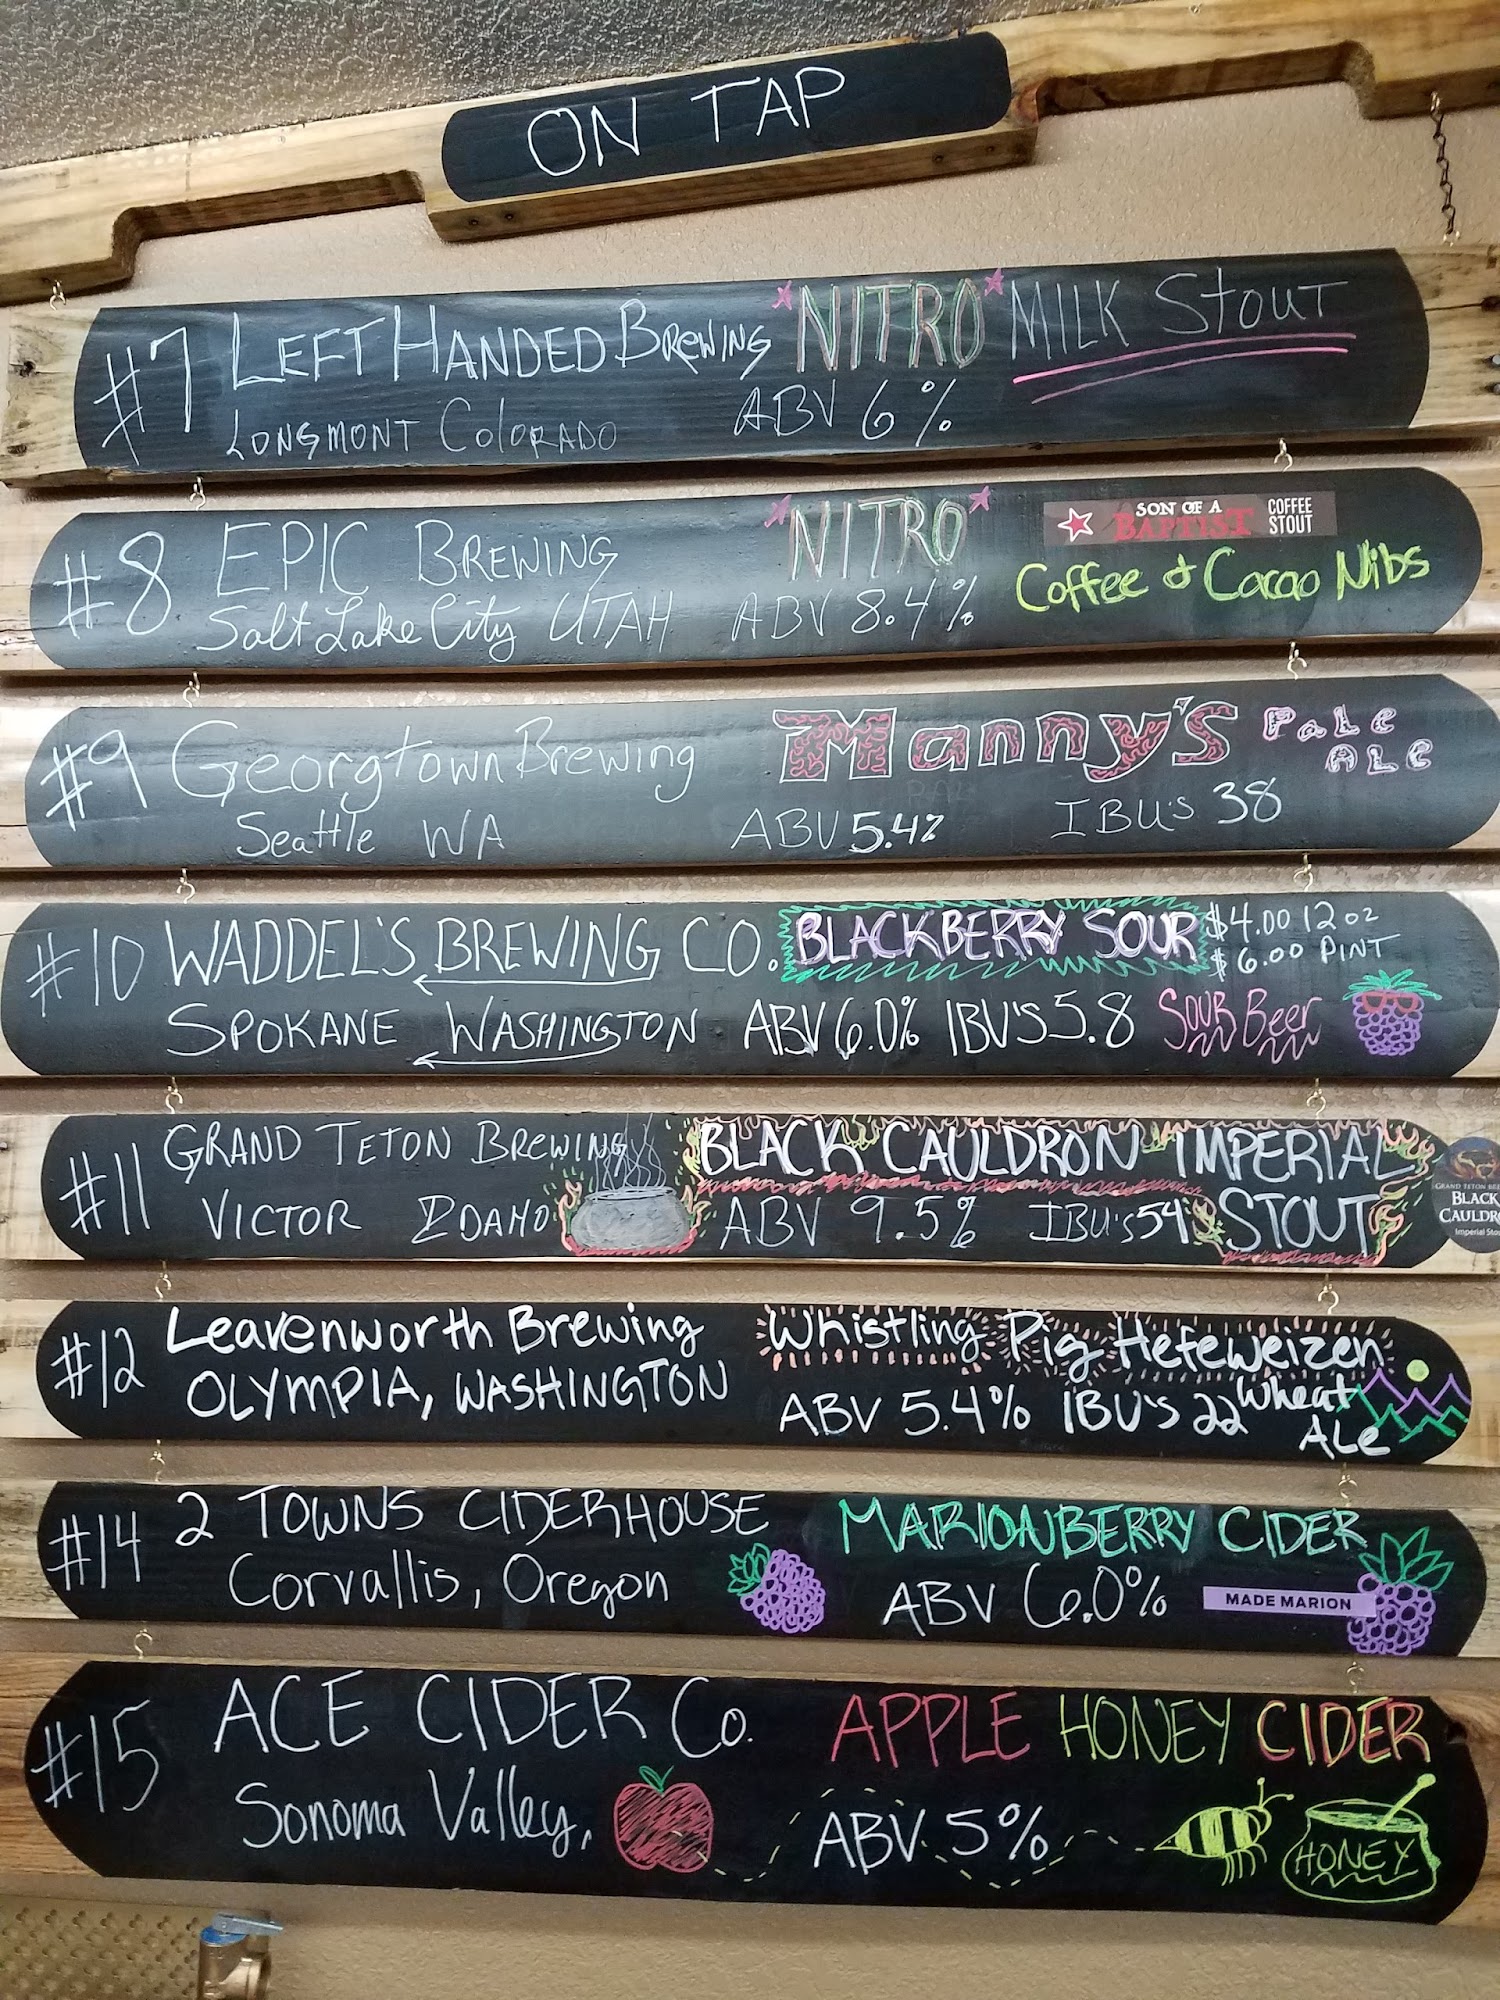 ON TAP
#7 LEFT HANDED BREWING *NITRO* MILK STOUT
LONGMONT COLORADO ABV 6%
#8 EPIC BREWING NITRO SON OF A BAPTIST COFFEE STOUT
Salt Lake City UTAH ABV 8.4% Coffee & Cacao Nibs
#9 Georgtown Brewing Manny's PALE ALE
Seattle WA ABV 5.4% IBU's 38
#10 WADDEL'S BREWING CO. BLACKBERRY SOUR $4.00 12 oz
$6.00 PINT
SPOKANE WASHINGTON ABV 6.0% IBU'S 5.8 SOUR Beer
#11 GRAND TETON BREWING BLACK CAULDRON IMPERIAL
VICTOR IDAHO ABV 9.5% IBU's 54 STOUT
BLACK
Imperial
#12 Leavenworth Brewing Whistling Pig Hefeweizen
OLYMPIA, WASHINGTON ABV 5.4% IBU'S 22 Wheat ALe
#14 2 TOWNS CIDERHOUSE MARIONBERRY CIDER
Corvallis, Oregon ABV 6.0% MADE MARION
#15 ACE CIDER Co. APPLE HONEY CIDER
Sonoma Valley, ABV 5% HONEY